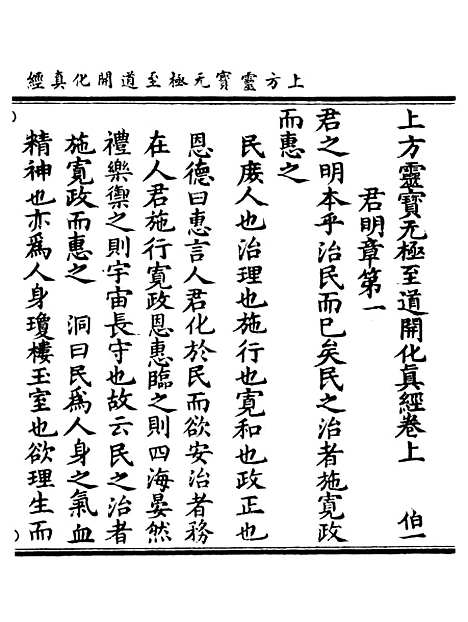 上方靈寳元極至道開化真經
上方靈寳无極至道開化眞經卷上　伯一
君明章第一
君之明本乎治民而巳矣民之治者施寛政
而惠之
民庻人也治理也施行也寛和也政正也
恩德曰惠言人君化於民而欲安治者務
在人君施行寛政恩惠臨之則四海晏然
禮樂禦之則宇宙長守也故云民之治者
施寛政而惠之　洞曰民爲人身之氣血
精神也亦爲人身瓊樓玉室也欲理生而